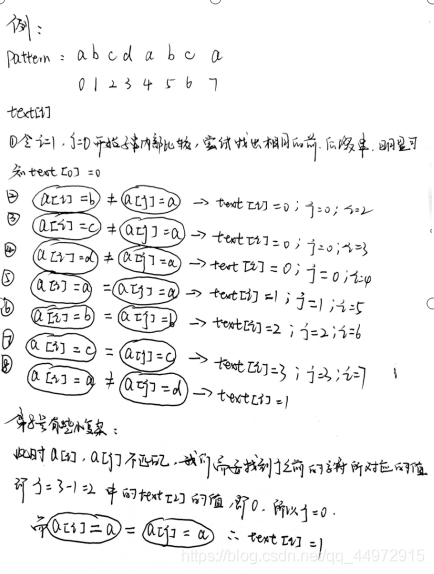 例：
pattern : a b c d a b c a
0 1 2 3 4 5 6 7
text[i]
①令i=1, j=0 开始字串内部比较, 尝试找出相同的前、后缀串, 明显可
知 text[0]=0
② a[i]=b ≠ a[j]=a → text[i]=0; j=0; i=2
③ a[i]=c ≠ a[j]=a → text[i]=0; j=0; i=3
④ a[i]=d ≠ a[j]=a → text[i]=0; j=0; i=4
⑤ a[i]=a = a[j]=a → text[i]=1; j=1; i=5
⑥ a[i]=b = a[j]=b → text[i]=2; j=2; i=6
⑦ a[i]=c = a[j]=c → text[i]=3; j=3; i=7
⑧ a[i]=a ≠ a[j]=d → text[i]=1
第8号有些小复杂：
此时 a[i], a[j] 不匹配, 我们需要找到j之前的字符所对应的值
即 j=3-1=2 中的text[2]的值, 即0. 所以j=0.
而 a[i]=a = a[j]=a ∴ text[i]=1
https://blog.csdn.net/qq_44972915